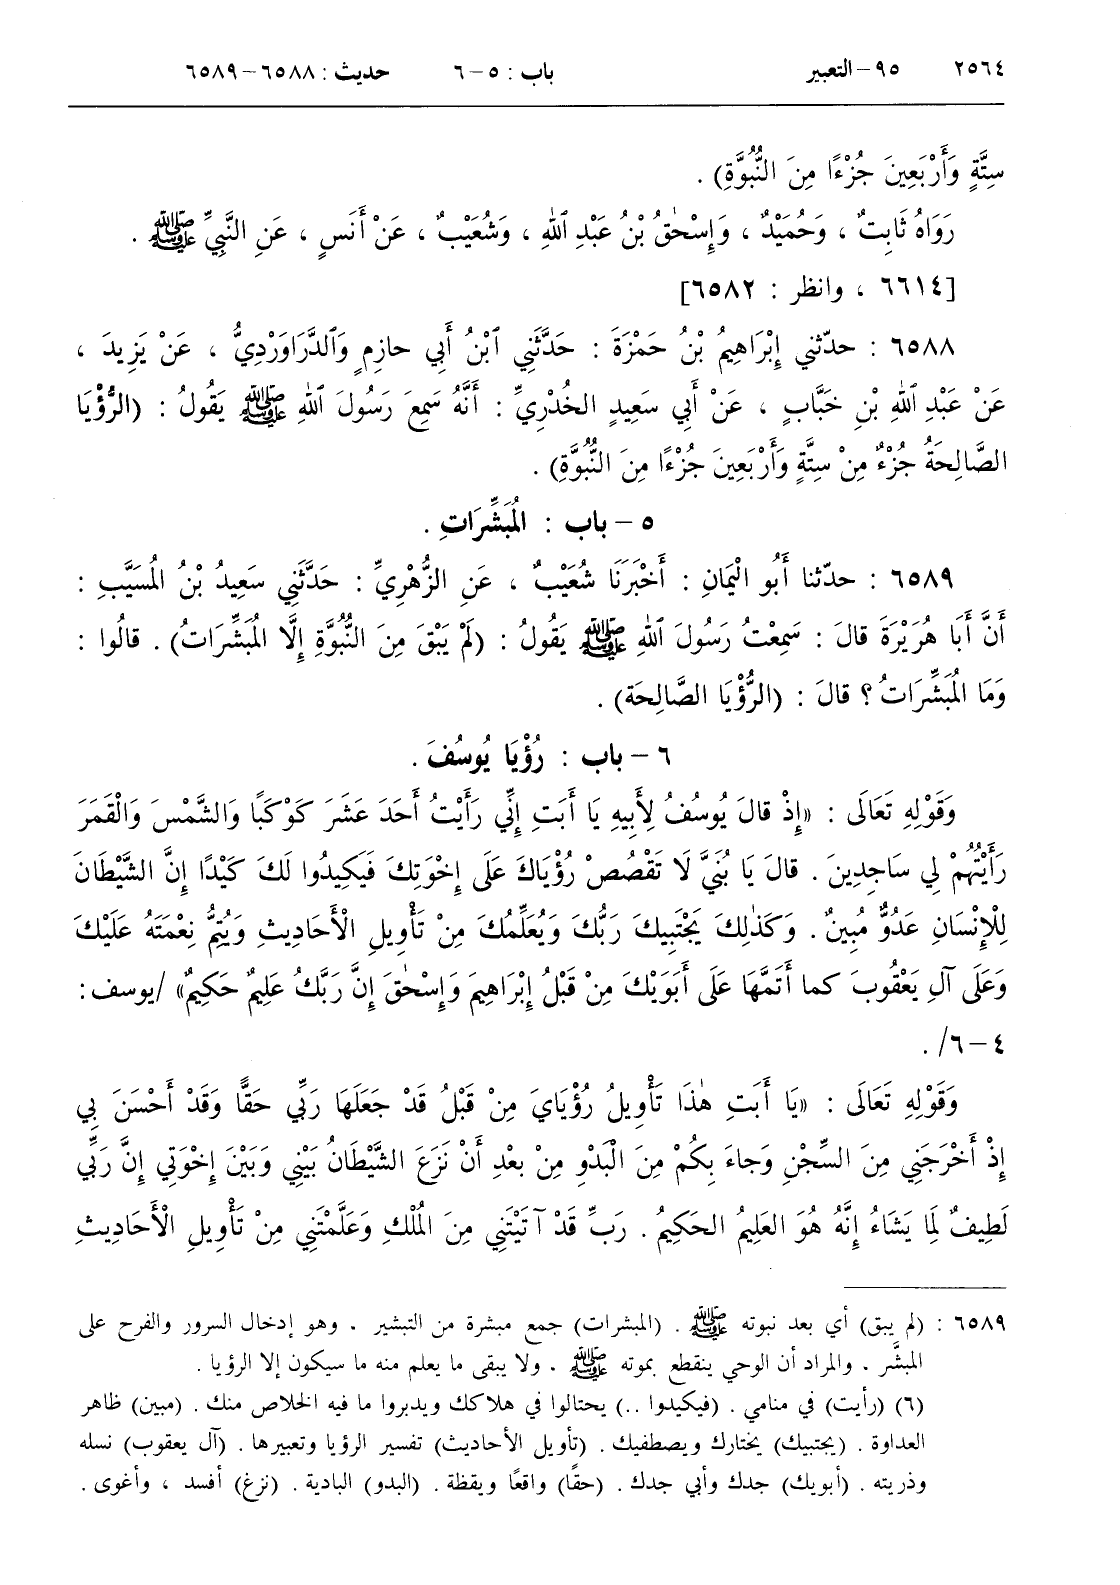 ٢٥٦٤ ٩٥ – التعبير باب : ٥ – ٦ حديث : ٦٥٨٨ – ٦٥٨٩
سِتَّةٍ وَأَرْبَعِينَ جُزْءًا مِنَ النُّبُوَّةِ) .
رَوَاهُ ثَابِتٌ ، وَحُمَيْدٌ ، وَإِسْحٰقُ بْنُ عَبْدِ ٱللهِ ، وَشُعَيْبٌ ، عَنْ أَنَسٍ ، عَنِ النَّبِيِّ ﷺ .
[٦٦١٤ ، وانظر : ٦٥٨٢]
٦٥٨٨ : حدّثني إِبْرَاهِيمُ بْنُ حَمْزَةَ : حَدَّثَنِي ٱبْنُ أَبِي حازِمٍ وَٱلدَّرَاوَرْدِيُّ ، عَنْ يَزِيدَ ،
عَنْ عَبْدِ ٱللهِ بْنِ خَبَّابٍ ، عَنْ أَبِي سَعِيدٍ الخُدْرِيِّ : أَنَّهُ سَمِعَ رَسُولَ ٱللهِ ﷺ يَقُولُ : (الرُّؤْيَا
الصَّالِحَةُ جُزْءٌ مِنْ سِتَّةٍ وَأَرْبَعِينَ جُزْءًا مِنَ النُّبُوَّةِ) .
٥ – باب : المُبَشِّرَاتِ .
٦٥٨٩ : حدّثنا أَبُو الْيَمَانِ : أَخْبَرَنَا شُعَيْبٌ ، عَنِ الزُّهْرِيِّ : حَدَّثَنِي سَعِيدُ بْنُ المُسَيَّبِ :
أَنَّ أَبَا هُرَيْرَةَ قالَ : سَمِعْتُ رَسُولَ ٱللهِ ﷺ يَقُولُ : (لَمْ يَبْقَ مِنَ النُّبُوَّةِ إِلَّا المُبَشِّرَاتُ) . قالُوا :
وَمَا المُبَشِّرَاتُ ؟ قالَ : (الرُّؤْيَا الصَّالِحَة) .
٦ – باب : رُؤْيَا يُوسُفَ .
وَقَوْلِهِ تَعَالَى : «إِذْ قالَ يُوسُفُ لِأَبِيهِ يَا أَبَتِ إِنِّي رَأَيْتُ أَحَدَ عَشَرَ كَوْكَبًا وَالشَّمْسَ وَالْقَمَرَ
رَأَيْتُهُمْ لِي سَاجِدِينَ . قالَ يَا بُنَيَّ لَا تَقْصُصْ رُؤْيَاكَ عَلَى إِخْوَتِكَ فَيَكِيدُوا لَكَ كَيْدًا إِنَّ الشَّيْطَانَ
لِلْإِنْسَانِ عَدُوٌّ مُبِينٌ . وَكَذٰلِكَ يَجْتَبِيكَ رَبُّكَ وَيُعَلِّمُكَ مِنْ تَأْوِيلِ الْأَحَادِيثِ وَيُتِمُّ نِعْمَتَهُ عَلَيْكَ
وَعَلَى آلِ يَعْقُوبَ كما أَتَمَّهَا عَلَى أَبَوَيْكَ مِنْ قَبْلُ إِبْرَاهِيمَ وَإِسْحٰقَ إِنَّ رَبَّكَ عَلِيمٌ حَكِيمٌ» /يوسف :
٤ – ٦/ .
وَقَوْلِهِ تَعَالَى : «يَا أَبَتِ هٰذَا تَأْوِيلُ رُؤْيَايَ مِنْ قَبْلُ قَدْ جَعَلَهَا رَبِّي حَقًّا وَقَدْ أَحْسَنَ بِي
إِذْ أَخْرَجَنِي مِنَ السِّجْنِ وَجاءَ بِكُمْ مِنَ الْبَدْوِ مِنْ بعْدِ أَنْ نَزَغَ الشَّيْطَانُ بَيْنِي وَبَيْنَ إِخْوَتِي إِنَّ رَبِّي
لَطِيفٌ لِمَا يَشَاءُ إِنَّهُ هُوَ العَلِيمُ الحَكِيمُ . رَبِّ قَدْ آتَيْتَنِي مِنَ المُلْكِ وَعَلَّمْتَنِي مِنْ تَأْوِيلِ الْأَحَادِيثِ
٦٥٨٩ : (لم يبق) أي بعد نبوته ﷺ . (المبشرات) جمع مبشرة من التبشير . وهو إدخال السرور والفرح على
المبشَّر . والمراد أن الوحي ينقطع بموته ﷺ . ولا يبقى ما يعلم منه ما سيكون إلا الرؤيا .
(٦) (رأيت) في منامي . (فيكيدوا ..) يحتالوا في هلاكك ويدبروا ما فيه الخلاص منك . (مبين) ظاهر
العداوة . (يجتبيك) يختارك ويصطفيك . (تأويل الأحاديث) تفسير الرؤيا وتعبيرها . (آل يعقوب) نسله
وذريته . (أبويك) جدك وأبي جدك . (حقًا) واقعًا ويقظة . (البدو) البادية . (نزغ) أفسد ، وأغوى .